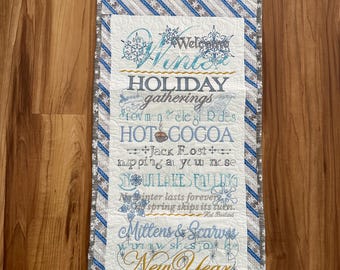 Welcome
Winter
HOLIDAY
gatherings
HOT COCOA
Jack Frost
nipping at your nose
No winter lasts forever,
no spring skips its turn.
Hal Borland
Mittens & Scarves
New Year